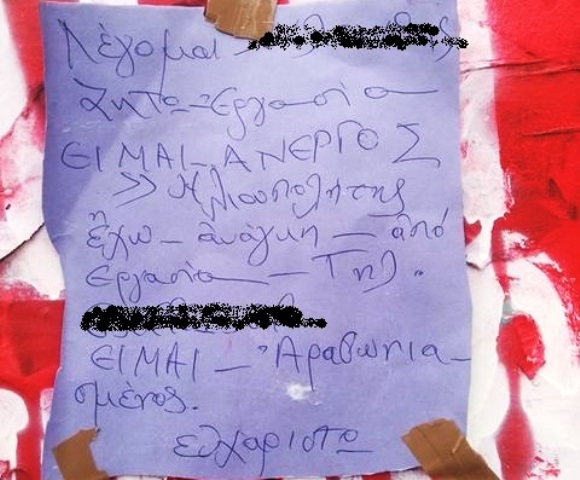 Λέγομαι
Ζητω - Εργασία
ΕΙΜΑΙ - ΑΝΕΡΓΟΣ
>> Ηλιουπολητης
ἔχω - ἀνάγκη - ἀπό
εργασία - Τηλ.
ΕΙΜΑΙ - Ἀραβωνια-
σμένος.
ευχαριστω